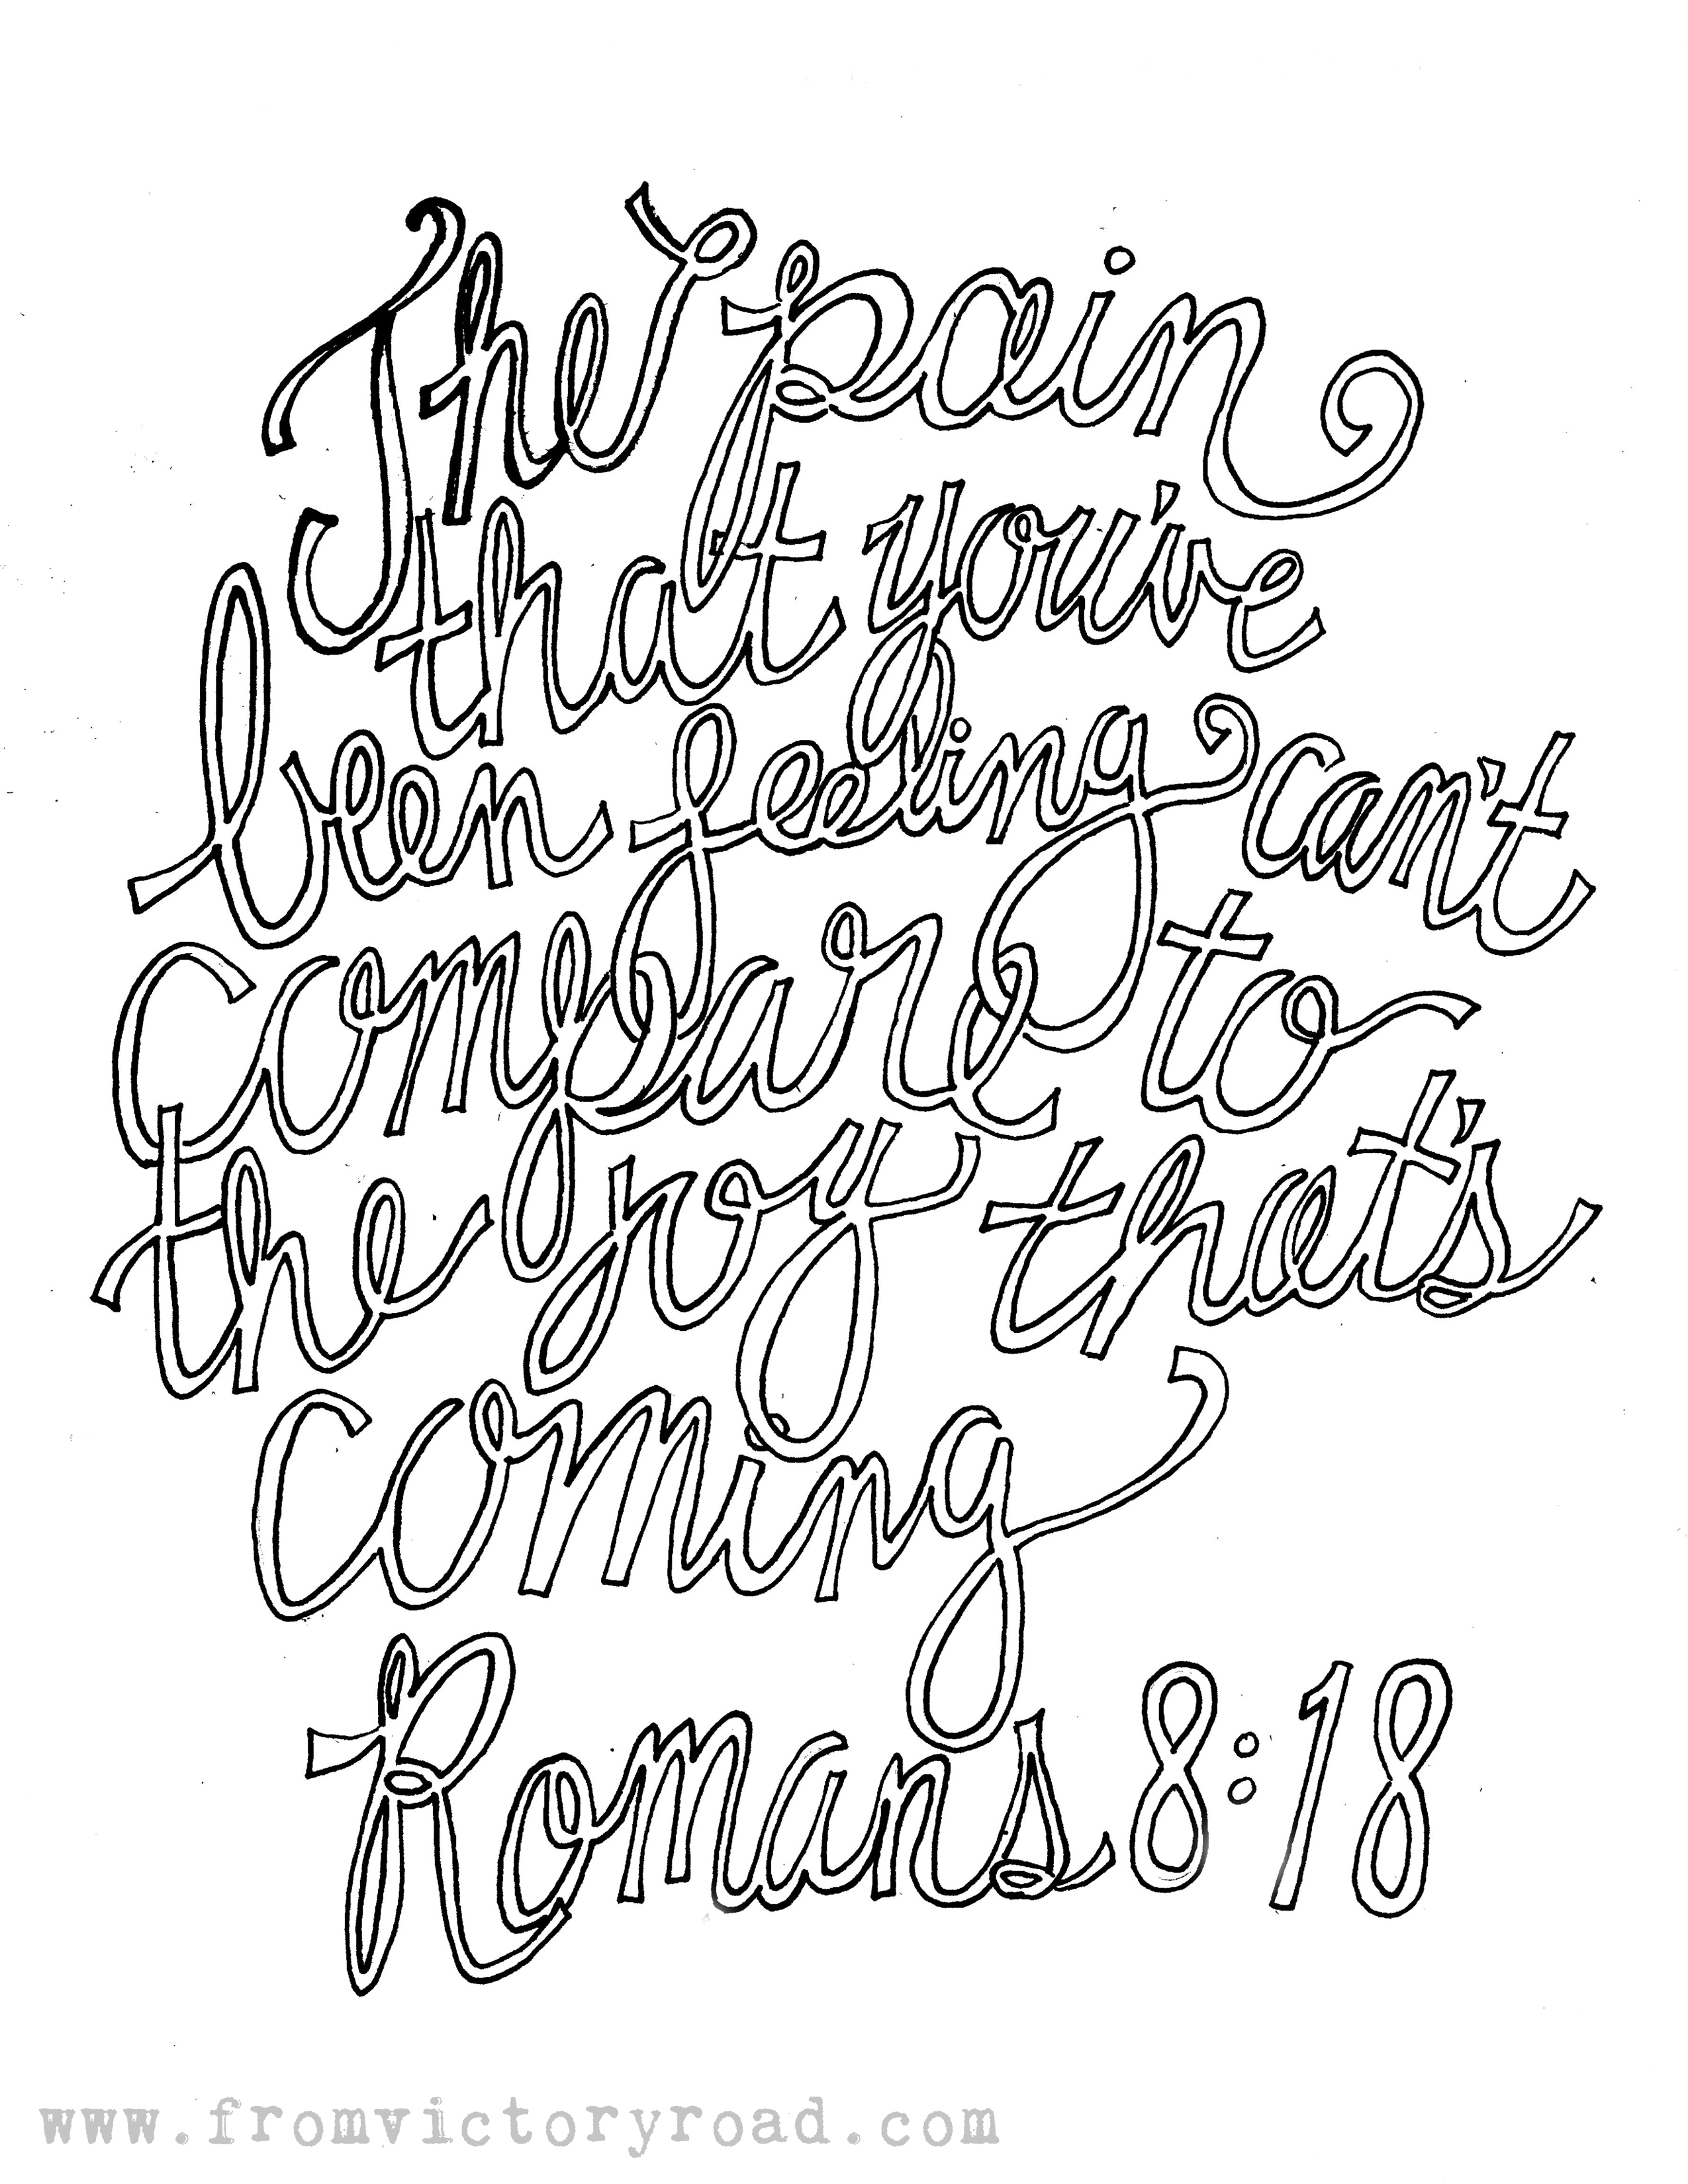 The pain
that you've
been feeling can't
compare to
the joy that's
coming
Romans 8:18
www.fromvictoryroad.com